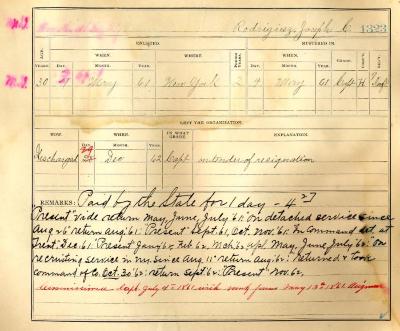 Rodriguez, Joseph C. 1323
ENLISTED. MUSTERED IN.
AGE. WHEN. WHERE. PERIOD YEARS. WHEN. GRADE. CO.
Years. Day. Month. Year. Day. Month. Year.
30 May 61 New York 2 9 May 61 Capt H
LEFT THE ORGANIZATION.
HOW. WHEN. IN WHAT GRADE EXPLANATION.
Day. Month. Year.
Discharged 29 Dec 62 Capt on tender of resignation
REMARKS: Paid by the State for 1 day - 4 27
Present vide return May, June, July '61: On detached service since
Aug 26 return Aug '61: Present Sept. '61, Oct. Nov. '61: In command det. at
Trent. Dec. '61: Present Jan'y 62, Feb. 62, Mch. 62, Apl. May, June, July '62: On
recruiting service in N.Y. since Aug 11" return Aug. '62: Returned & took
command of Co. Oct. 30 '62: return Sept '62: Present Nov. 62.
Commissioned Capt July 4th 1861 with rank from May 13th 1861